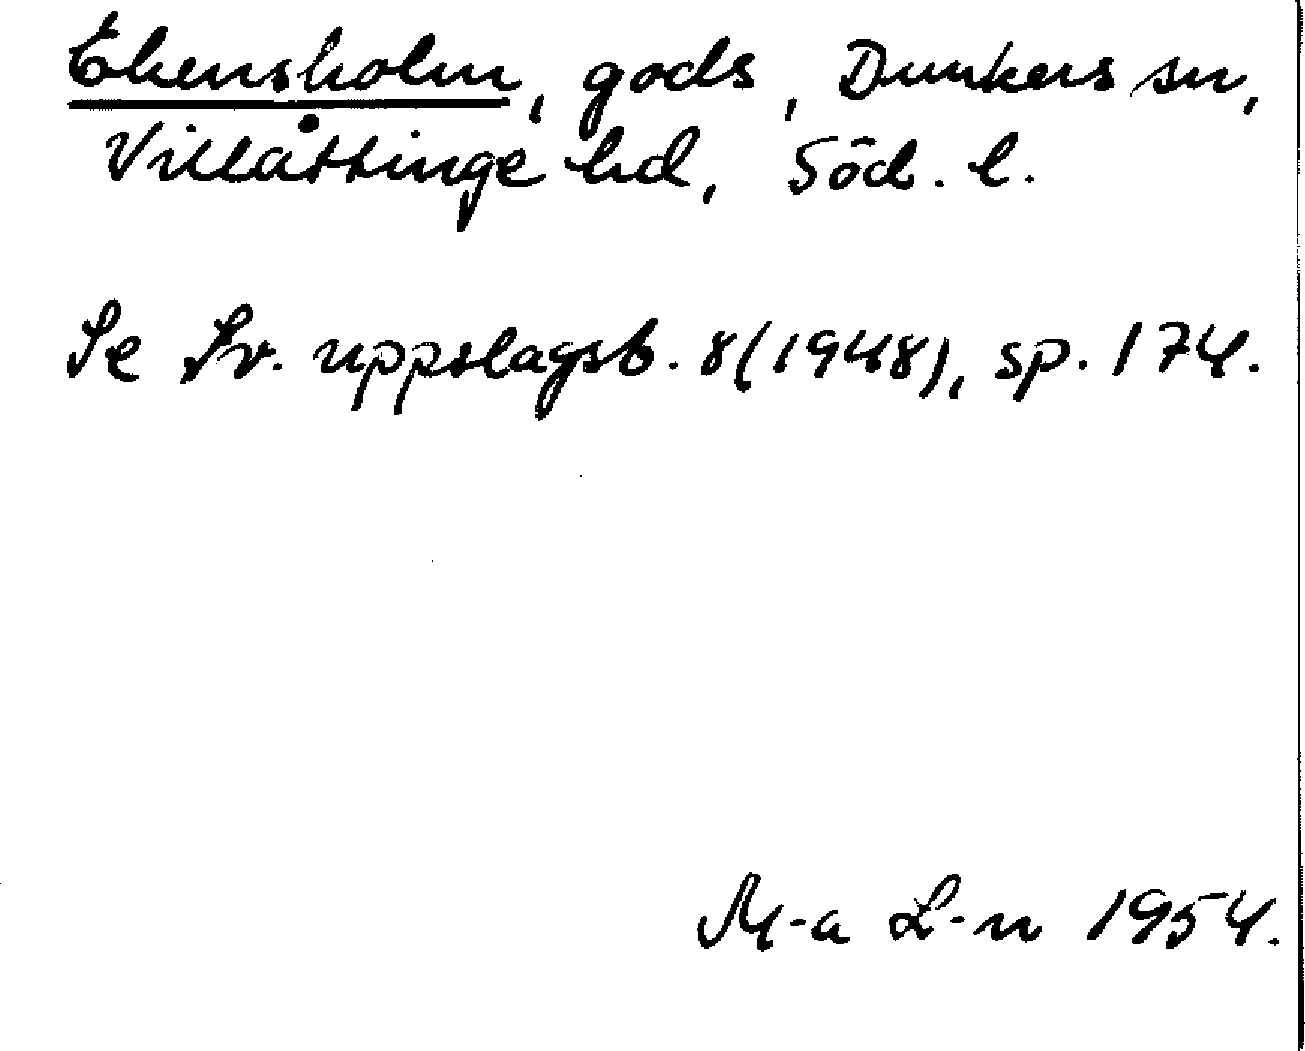 Ekensholm, gods, Dunkers sn,
Villåttinge hd, Söd. l.
Se Sv. uppslagsb. 8(1948), sp. 174.
M-a L-n 1954.